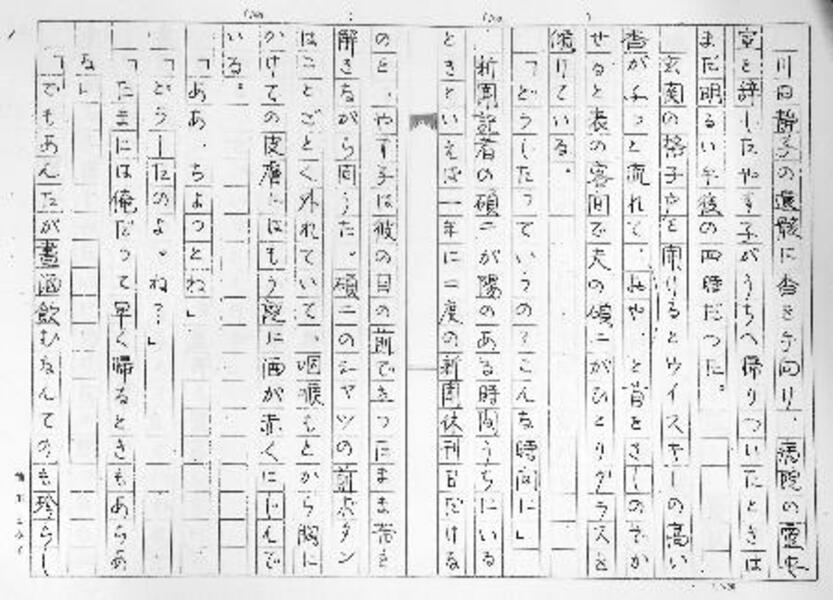 川田静子の遺骸に香を手向け、病院の霊安
室を辞したやす子がうちへ帰りついたときは
まだ明るい午後の四時だった。
玄関の格子戸を開けるとウイスキーの高い
香がチッと流れて、おや、と首をさしのぞか
せると表の客間で夫の碩二がひとりグラスを
傾けている。
「どうしたっていうの?こんな時間に」
新聞記者の碩二が陽のある時間うちにいる
ときといえば一年に二度の新聞休刊日だける
のと、やす子は彼の目の前で立ったまま帯を
解きながら問うた。碩二のシャツの前ボタン
はことごとく外れていて、咽喉もとから胸に
かけての皮膚にはもう既に酒が赤くにじんで
いる。
「ああ、ちょっとね」
「どうしたのよ。ね?」
「たまには俺だって早く帰るときもあらあ
な」
「でもあんたが晝酒飲むなんてのも珍らし